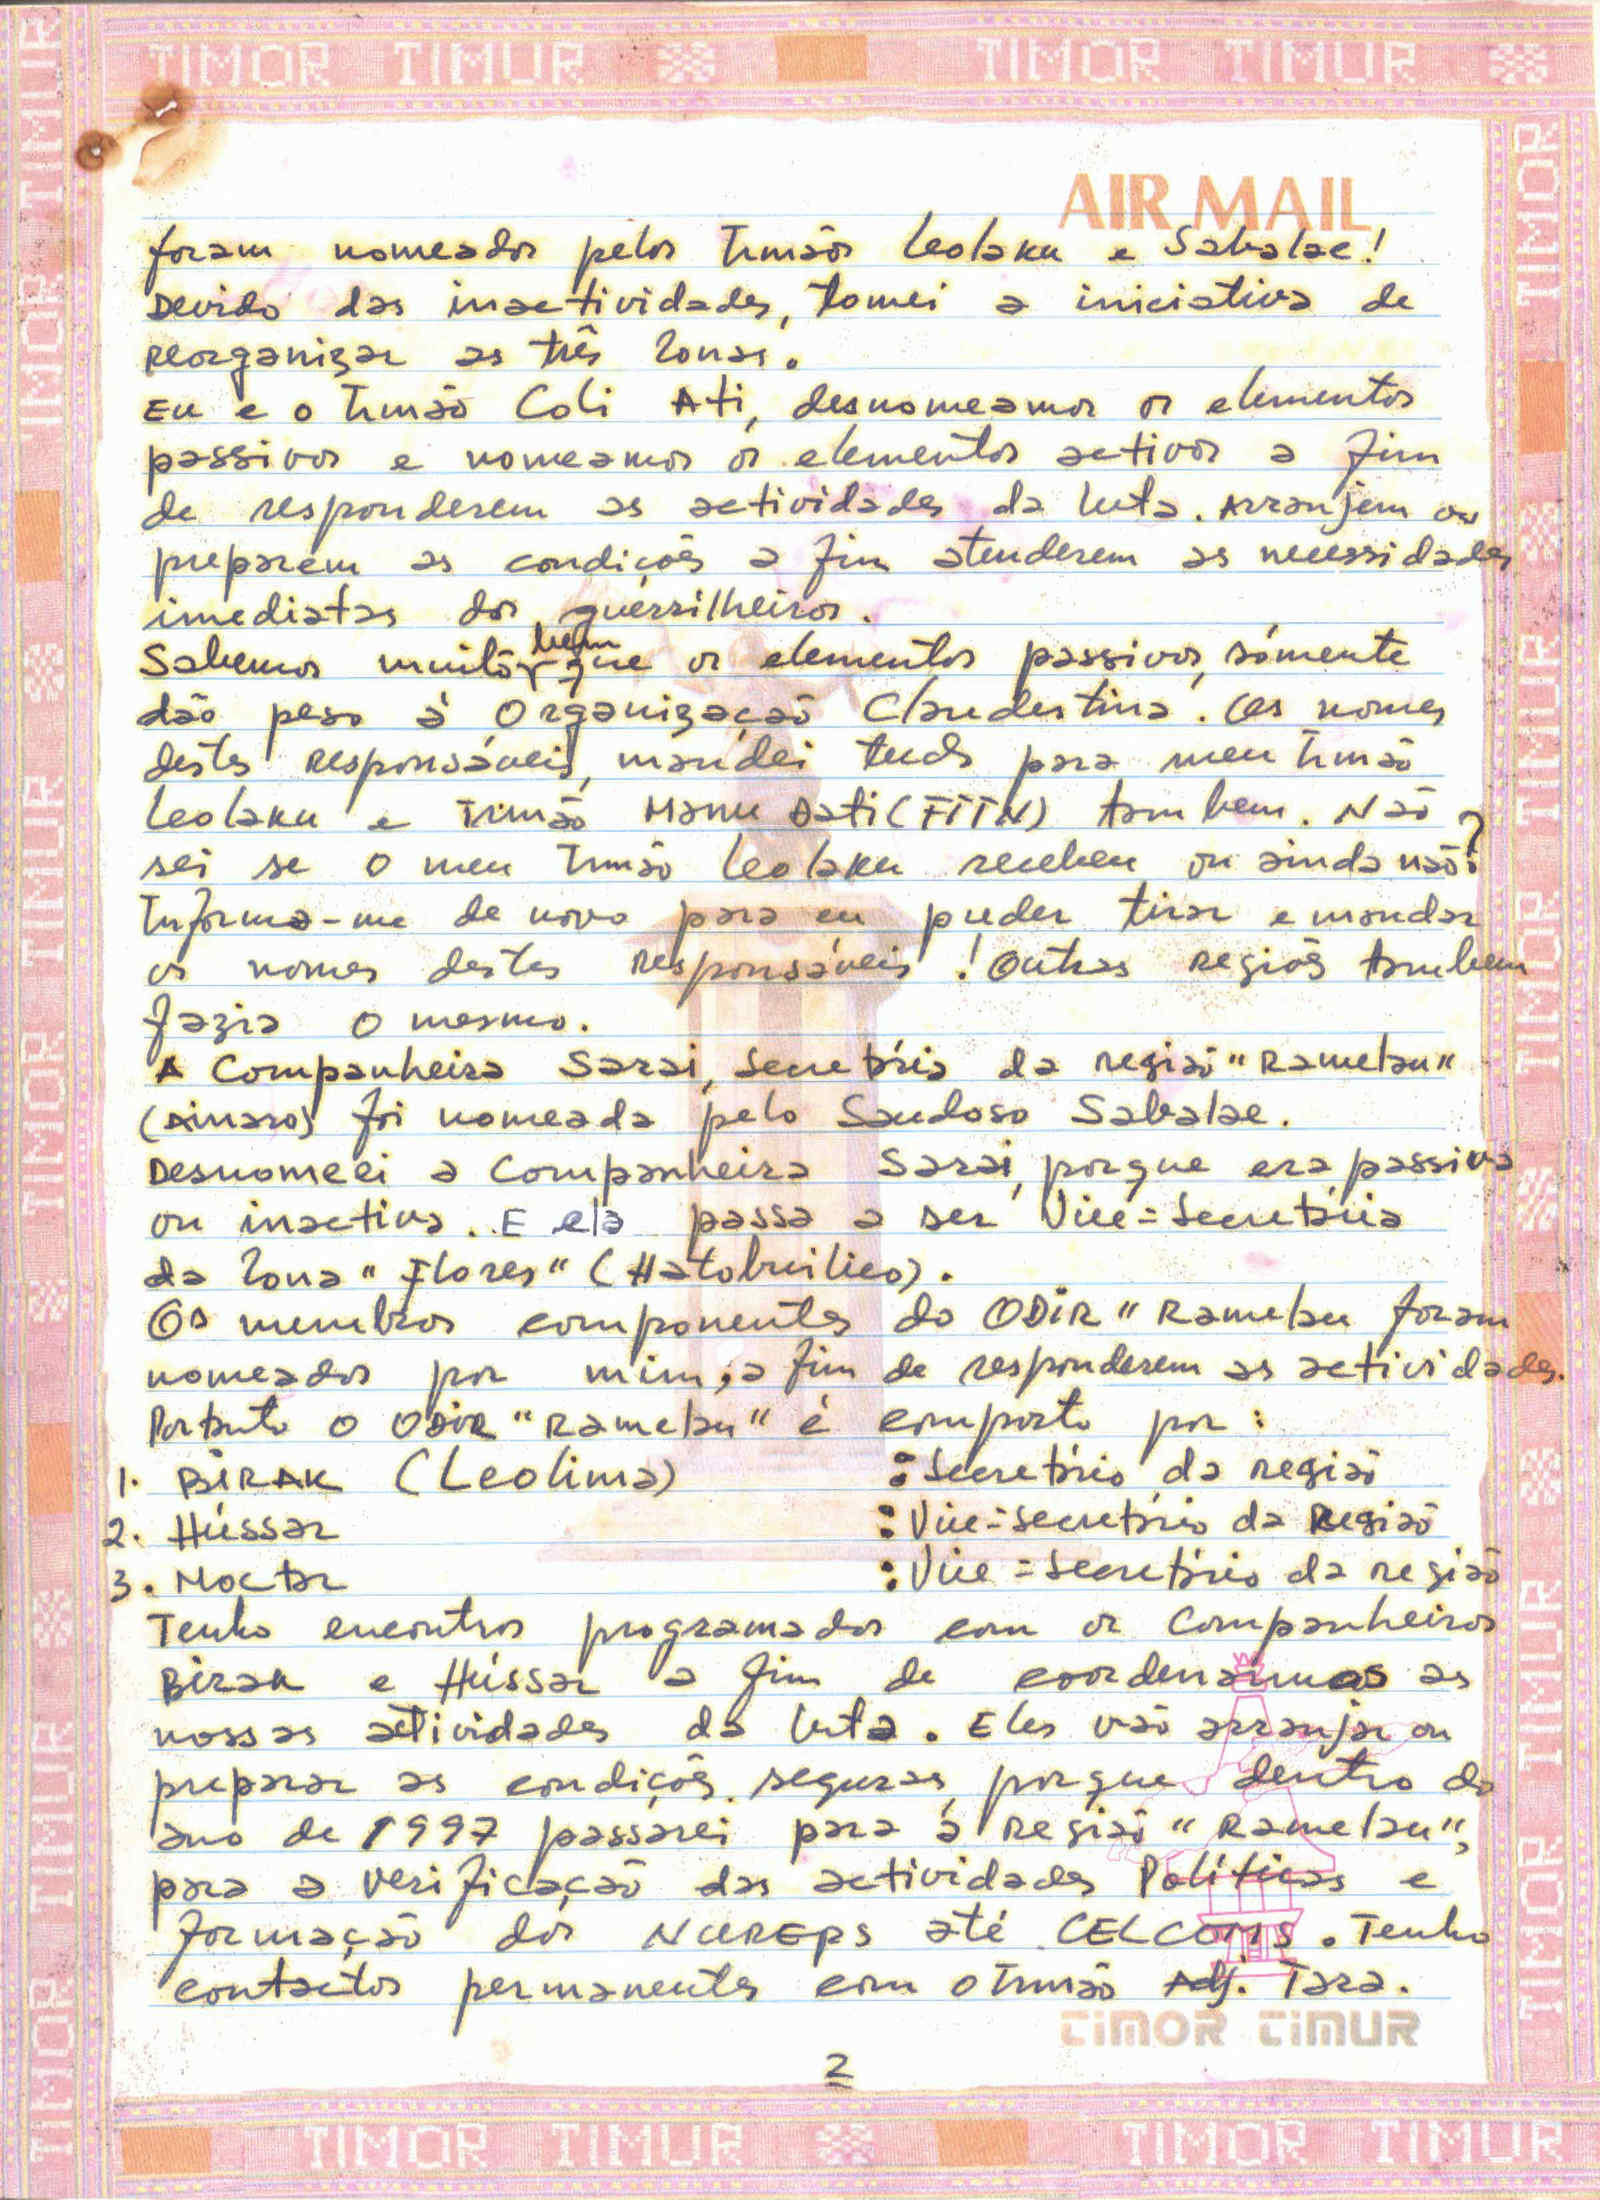 TIMOR TIMUR TIMOR TIMUR
AIR MAIL
foram nomeados pelos Irmãos Leolaku e Sabalae!
Devido das inactividades, tomei a iniciativa de
reorganizar as três zonas.
Eu e o Irmão Coli Ati, desnomeamos os elementos
passivos e nomeamos os elementos activos a fim
de responderem as actividades da luta. Arranjem ou
preparem as condições a fim atenderem as necessidades
imediatas dos guerrilheiros.
Sabemos muito bem que os elementos passivos, sómente
dão peso á Organização Clandestina. Os nomes
destes responsáveis, mandei tudo para meu Irmão
Leolaku e Irmão Manu Bati (FITN) tambem. Não
sei se o meu Irmão Leolaku recebeu ou ainda não?
Informa-me de novo para eu puder tirar e mandar
os nomes destes responsáveis! Outras regiões tambem
fazia o mesmo.
A Companheira Sarai, Secretária da região "Ramelau"
(Ainaro) foi nomeada pelo Saudoso Sabalae.
Desnomeei a Companheira Sarai, porque era passiva
ou inactiva. E ela passa a ser Vice=Secretária
da Zona "Flores" (Hatobuilico).
Os membros componentes do ODIR "Ramelau foram
nomeados por mim, a fim de responderem as actividades.
Portanto o ODIR "Ramelau" é composto por:
1. BÍRAK (Leolima) : Secretário da região
2. Hússar : Vice=Secretário da Região
3. Moctar : Vice=Secretário da região
Tenho encontros programados com os Companheiros
Bírak e Hússar a fim de coordenarmos as
nossas actividades da luta. Eles vão arranjar ou
preparar as condições seguras, porque dentro do
ano de 1997 passarei para á região "Ramelau",
para a verificação das actividades Políticas e
formação dos NUREPs até CELCOMs. Tenho
contactos permanentes com o Irmão Adj. Tara.
TIMOR TIMUR
2
TIMOR TIMUR TIMOR TIMUR